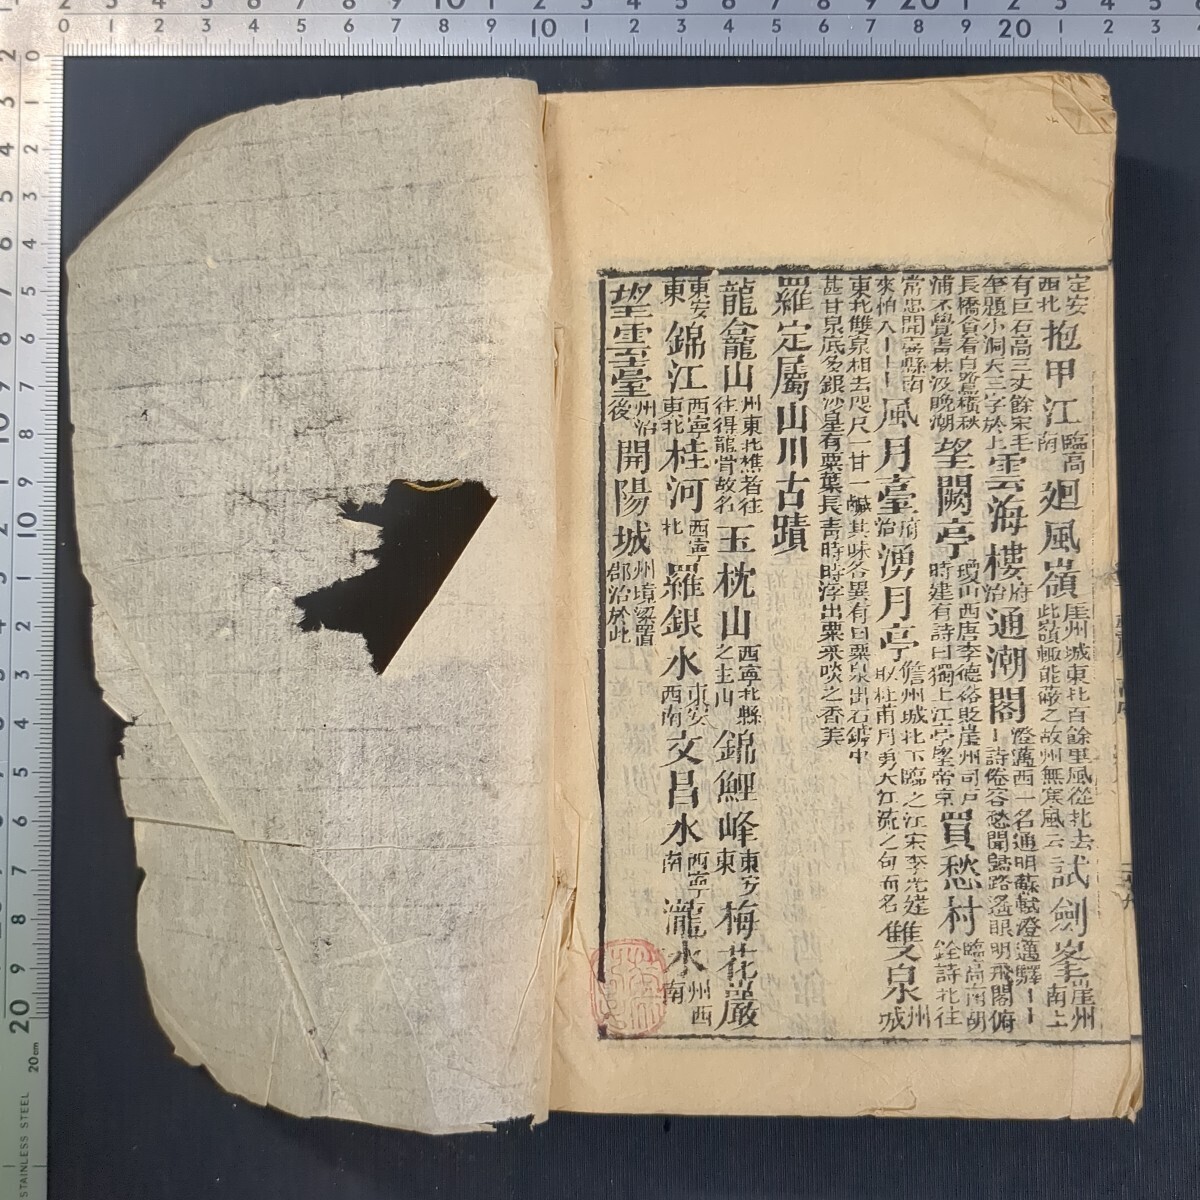 定安西北抱甲江臨高南廻風嶺崖州城東北百餘里風從北去此嶺輙能蔽之故州無寒風云試劍峯崖州南上
有巨石高三丈餘宋毛奎題小洞天三字於上雲海樓府治通潮閣澄邁西一名通明蘇軾澄邁驛丨丨丨詩倦客愁聞歸路遙眼明飛閣俯
長橋貪看白鷺橫秋浦不覺青林沒晚潮望闕亭瓊山西唐李德裕貶崖州司戶時建有詩曰獨上江亭望帝京買愁村臨高南胡銓詩北往
常思聞喜縣南來怕入丨丨丨風月臺府治湧月亭儋州城北下臨之江宋李光建取杜甫月勇大江流之句而名雙泉州城
東北雙泉相去咫尺一甘一鹹其味各異有曰粟泉出石罅中
甚甘泉底多銀沙星有粟葉長青時時浮出粟米啖之香美
羅定屬山川古蹟
龍龕山州東北樵者往往得龍骨故名玉枕山西寧北縣之主山錦鯉峰東安東梅花巖
東安東錦江西寧東北桂河西寧北羅銀水東安西南文昌水西寧南瀧水州西南
望雲臺州治後開陽城州境梁置郡治於此
STAINLESS STEEL
20cm